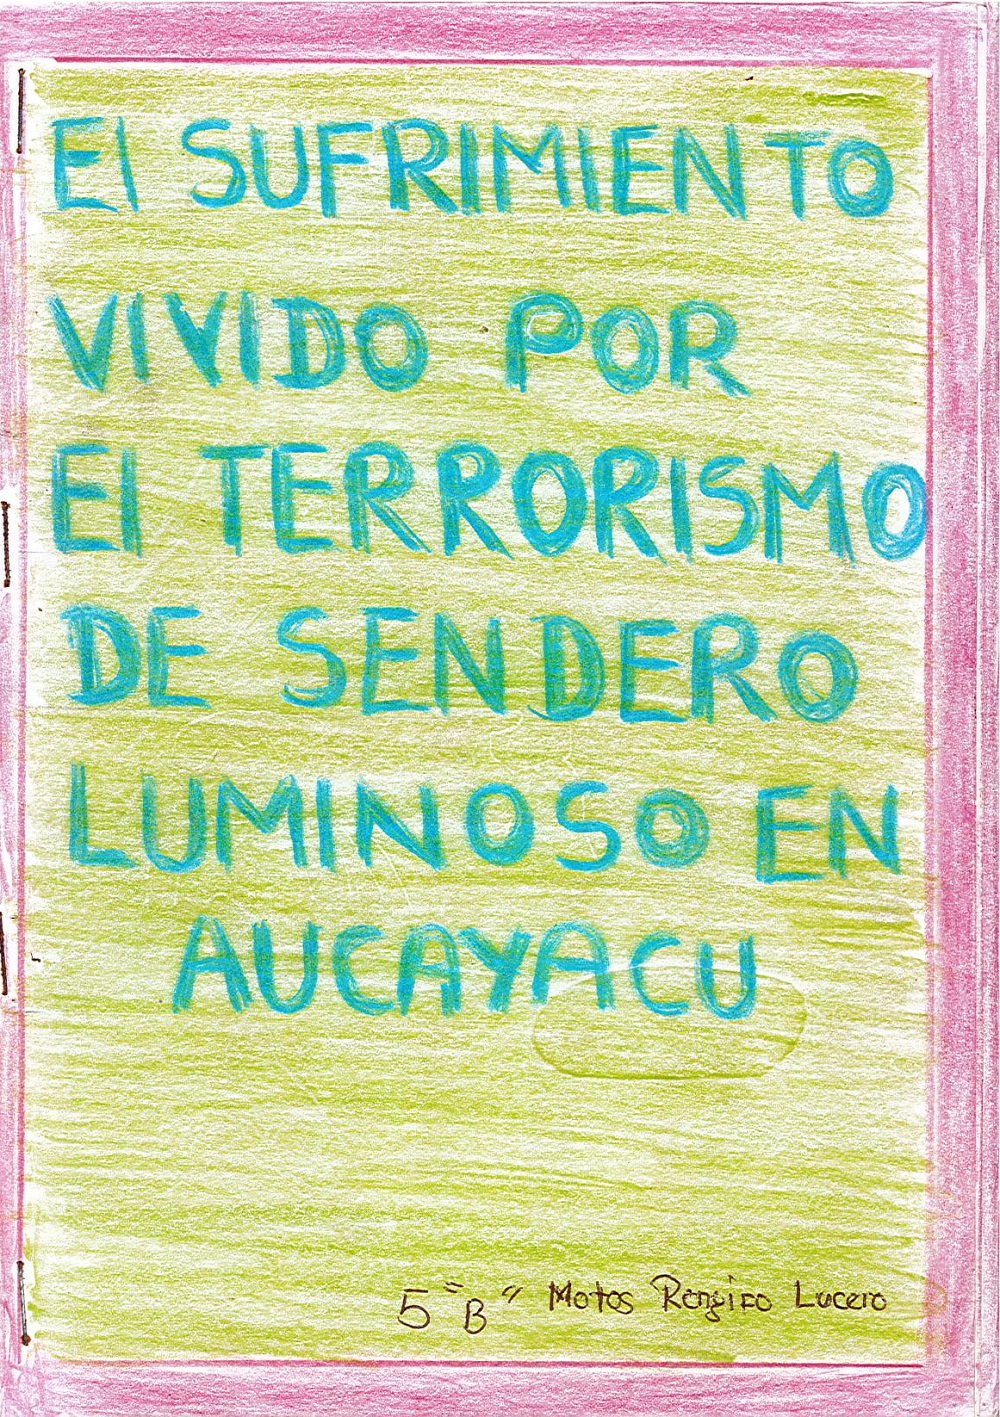 El SUFRIMIENTO
VIVIDO POR
El TERRORISMO
DE SENDERO
LUMINOSO EN
AUCAYACU
5 "B" Motos Rengifo Lucero